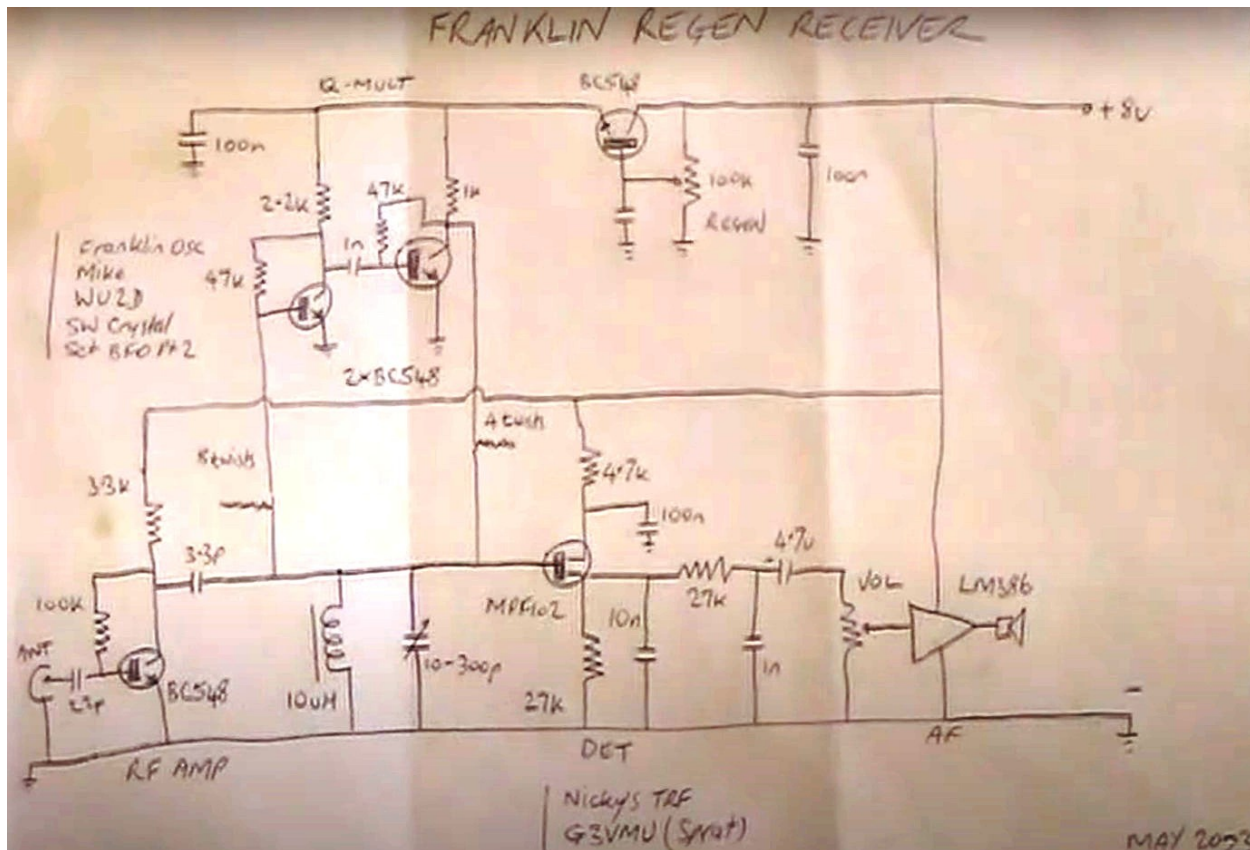 FRANKLIN REGEN RECEIVER
Q-MULT
BC548
+8v
100n
2.2k
47k
1k
100k
REGEN
100n
Franklin Osc
Mike
WU2D
SW Crystal
Set BFO Pt 2
47k
1n
2xBC548
8 twists
4 twists
3.3k
4.7k
100n
3.3p
4.7u
100k
MPF102
10n
27k
VOL
LM386
ANT
BC548
10uH
10-300p
27k
1n
-
RF AMP
DET
AF
Nicky's TRF
G3VMU (Sprat)
MAY